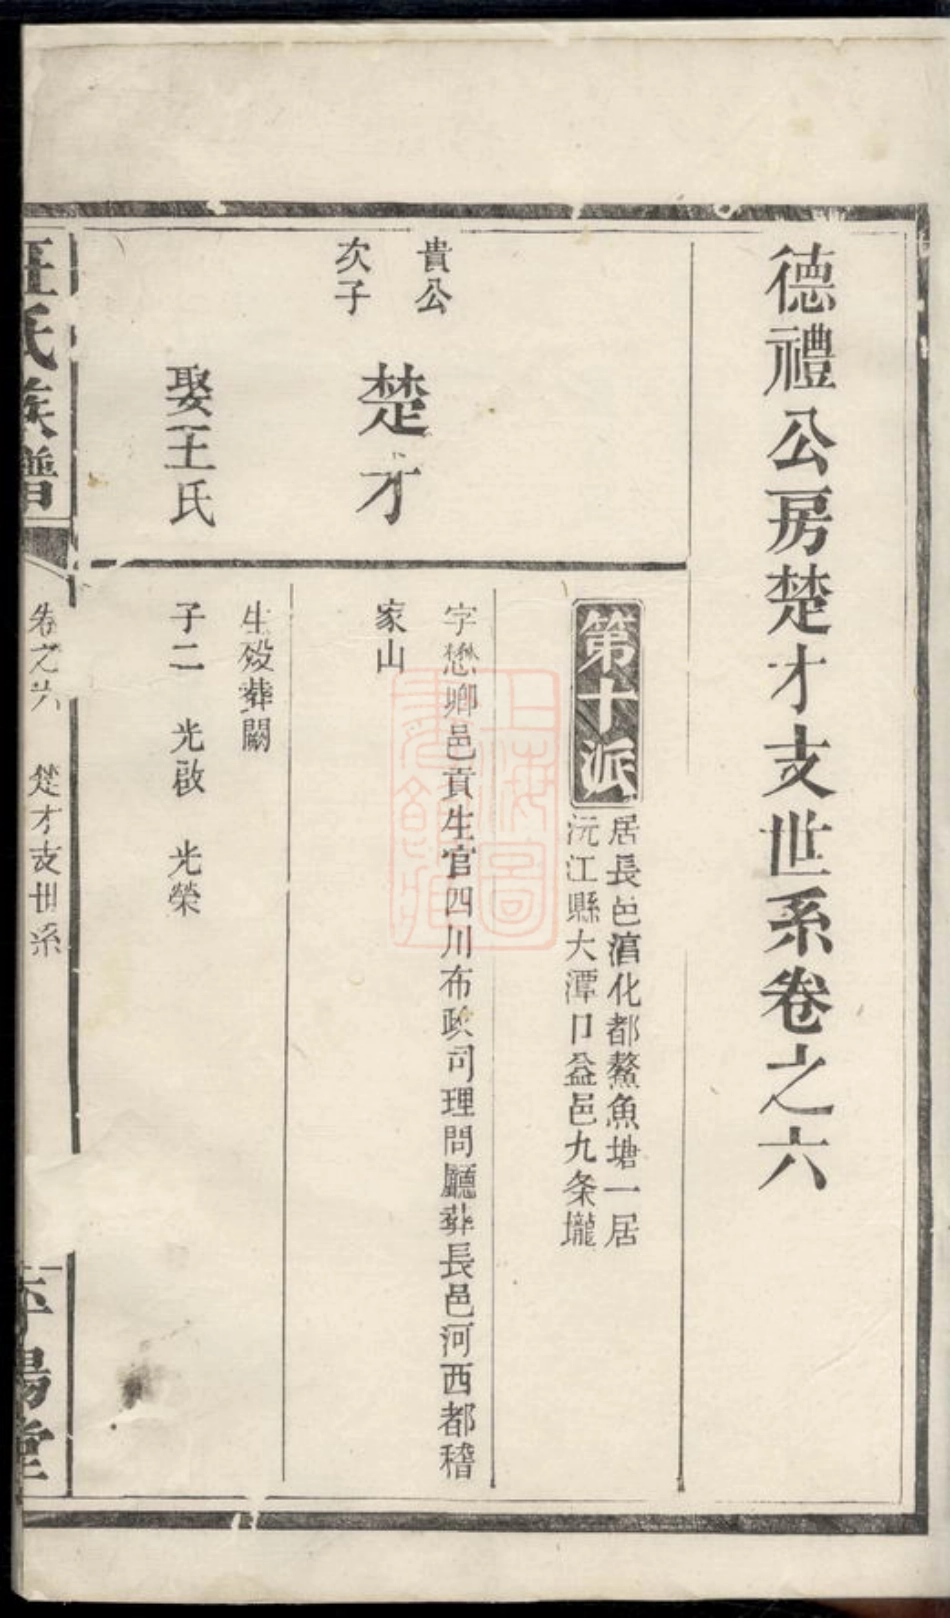 德禮公房楚才支世系卷之六
第十派
居長邑㵮化都鰲魚塘一居
沅江縣大潭口益邑九条壠
貴公
次子
楚才
字懋卿邑貢生官四川布政司理問廳葬長邑河西都稽
家山
娶王氏
生殁葬闕
子二 光啟 光榮
氏族譜
卷之六 楚才支世系
平陽堂
上海圖書館藏